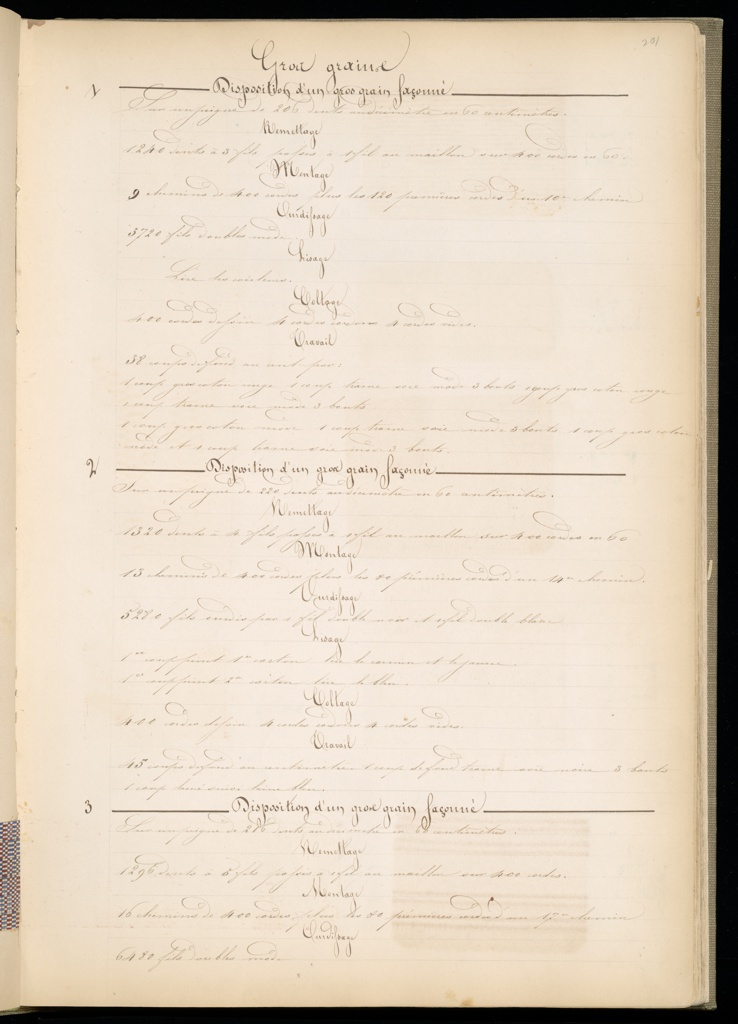 201
Gros grains
1 Disposition d'un gros grain façonné
Sur un peigne de 206 dents au décimètre en 60 centimètres.
Remettage
1240 dents à 3 fils, passés à 1 fil au maillon sur 400 cordes en 60.
Montage
9 chemins de 400 cordes, plus les 120 premières cordes d'un 10me chemin
Ourdissage
3720 fils doubles
Lisage
Lire les couleurs.
Colletage
400 cordes dessin 4 cordes cordons 4 cordes
Travail
38 coups de fond au
1 coup gros coton rouge 1 coup trame soie 3 bouts 1 coup gros coton rouge
1 coup trame soie 3 bouts
1 coup gros coton 1 coup trame soie 3 bouts 1 coup gros coton
et 1 coup trame soie 3 bouts.
2 Disposition d'un gros grain façonné
Sur un peigne de 220 dents au décimètre en 60 centimètres.
Remettage
1320 dents à 4 fils, passés à 1 fil au maillon sur 400 cordes en 60
Montage
13 chemins de 400 cordes, plus les 80 premières cordes d'un 14me chemin.
Ourdissage
5280 fils ourdis par 1 fil double noir et 1 fil double blanc
Lisage
1er coup 1er carton lire le et le jaune.
1er coup 2me carton lire le bleu.
Colletage
400 cordes dessin 4 cordes cordons 4 cordes
Travail
45 coups de fond au centimètre 1 coup de fond trame soie noire 3 bouts
1 coup trame bleu.
3 Disposition d'un gros grain façonné
Sur un peigne de 216 dents au décimètre en 60 centimètres.
Remettage
1296 dents à 5 fils, passés à 1 fil au maillon sur 400 cordes.
Montage
16 chemins de 400 cordes, plus les 80 premières cordes d'un 17me chemin
Ourdissage
6480 fils doubles